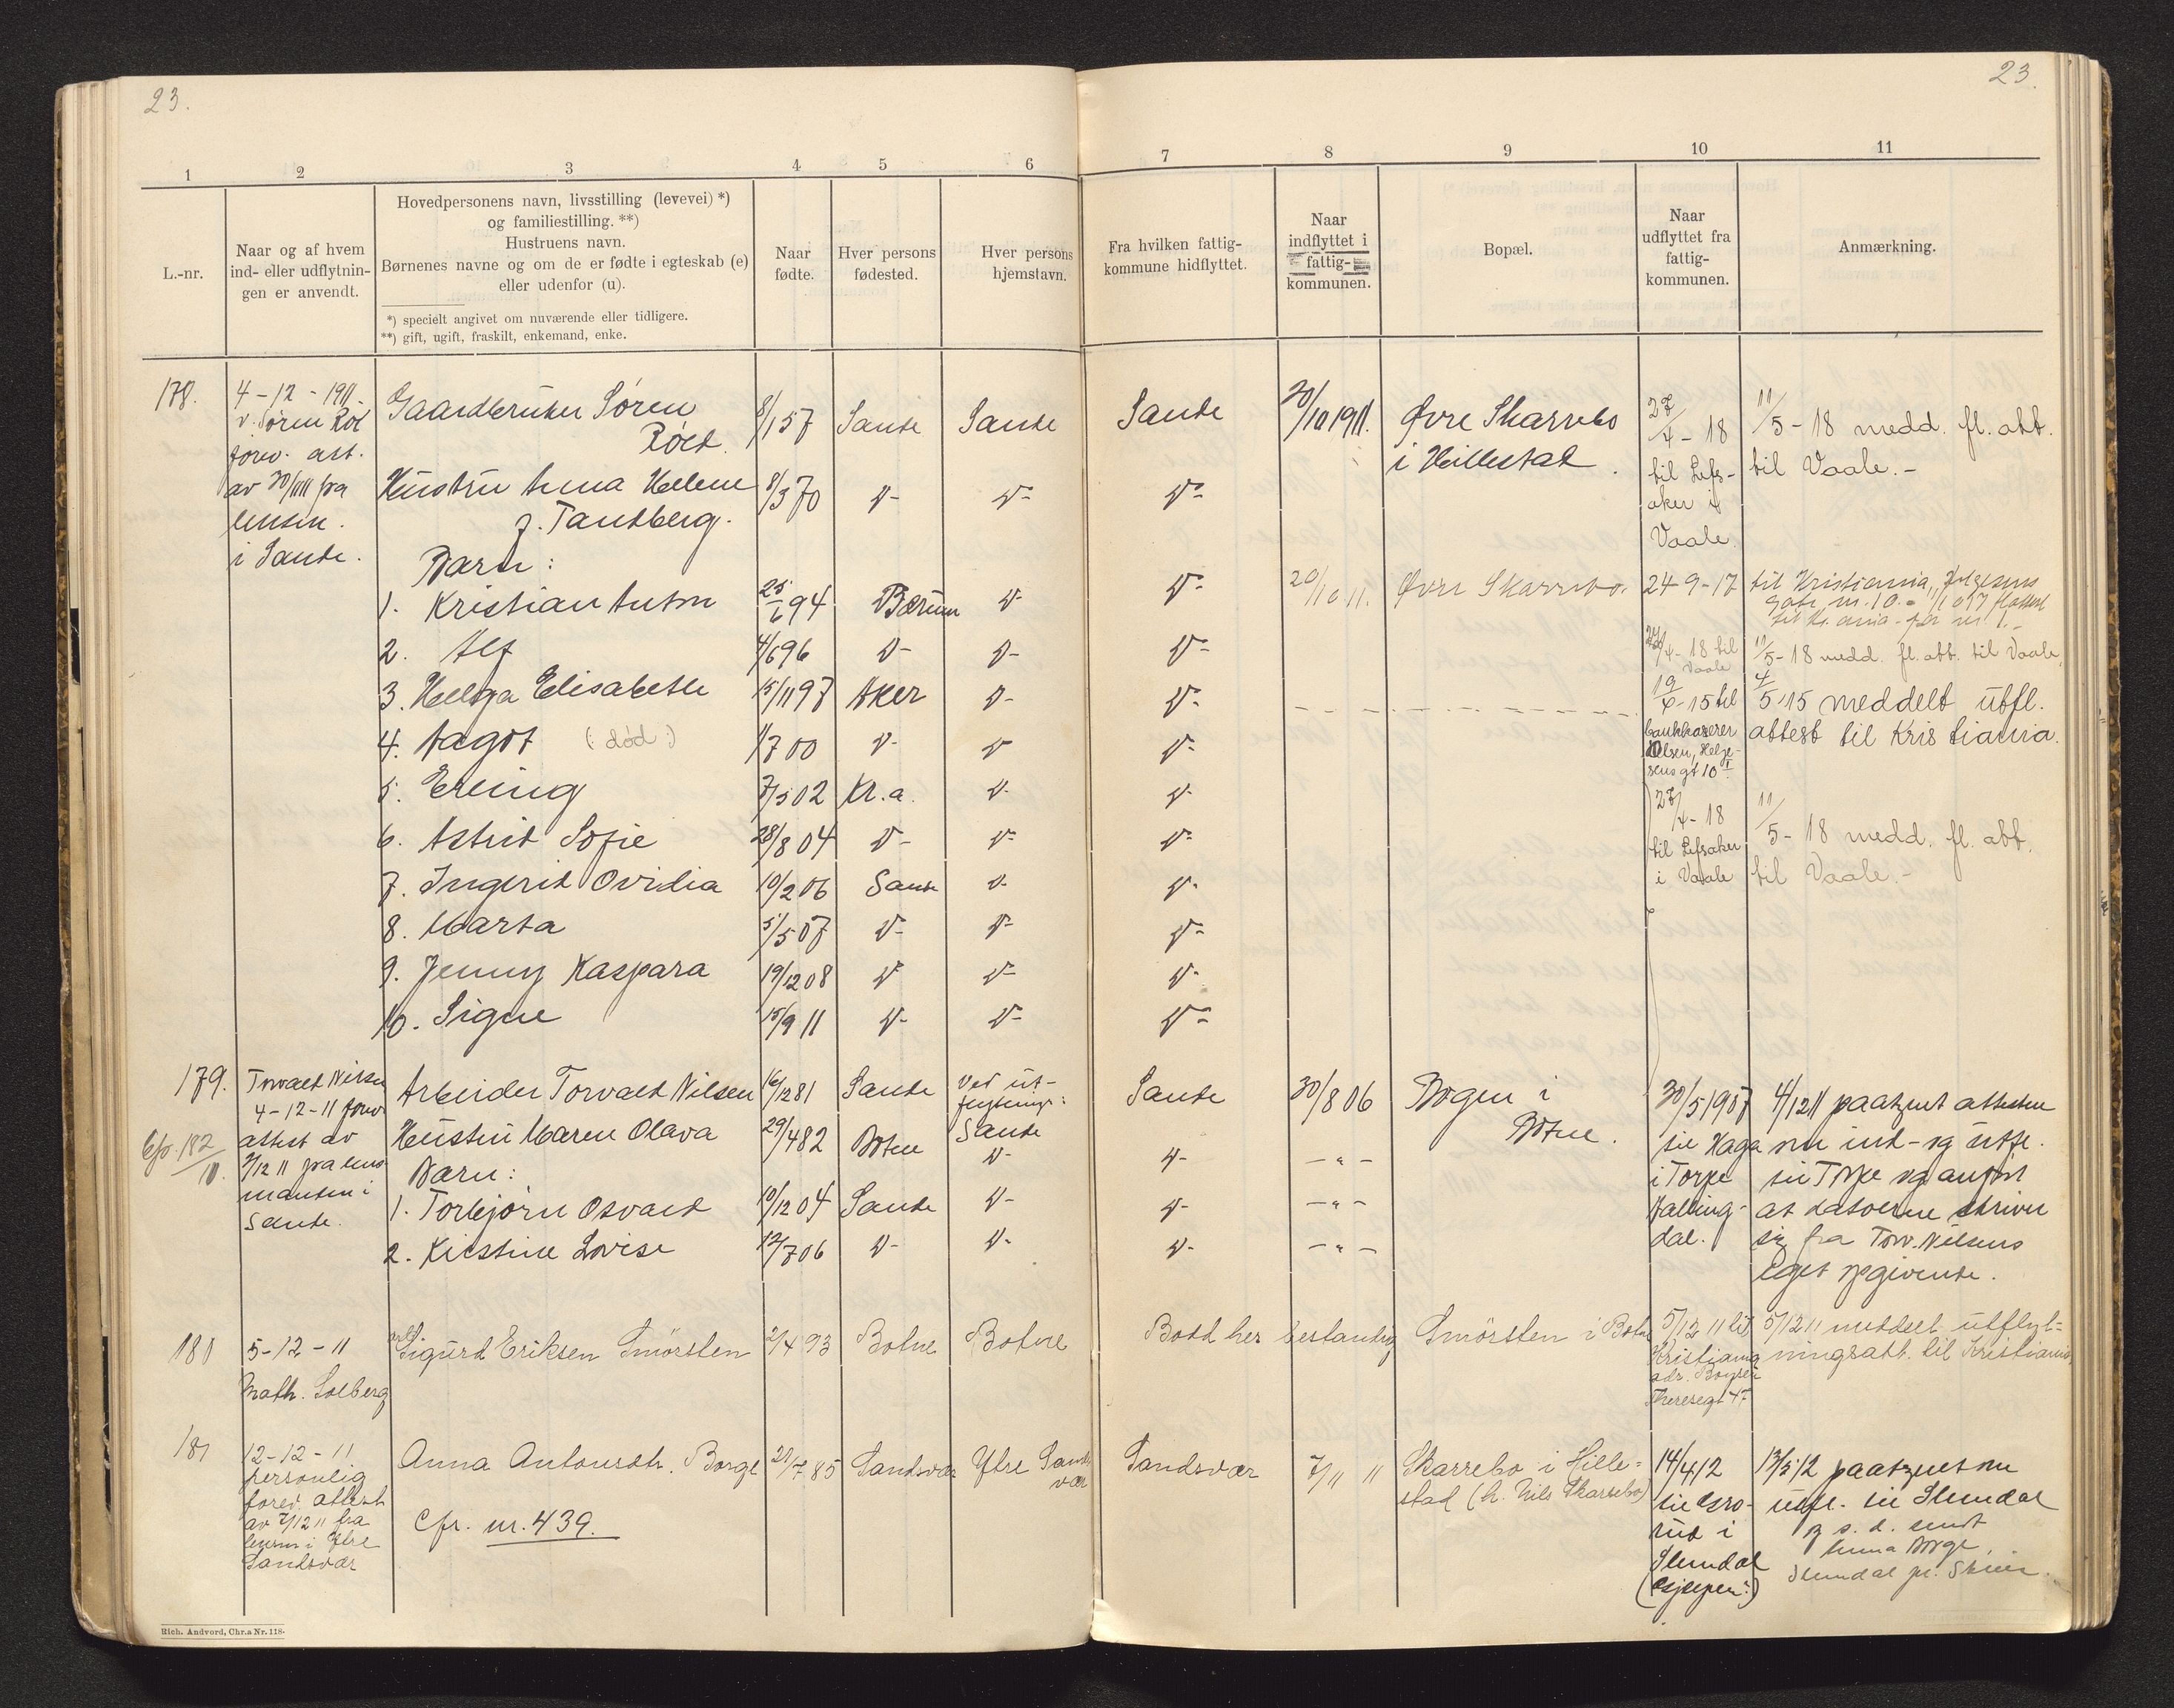 23.
23.
1
2
3
4
5
6
7
8
9
10
11
L.-nr.
Naar og af hvem
ind- eller udflytnin-
gen er anvendt.
Hovedpersonens navn, livsstilling (levevei) *)
og familiestilling. **)
Hustruens navn.
Børnenes navne og om de er fødte i egteskab (e)
eller udenfor (u).
*) specielt angivet om nuværende eller tidligere.
**) gift, ugift, fraskilt, enkemand, enke.
Naar
fødte.
Hver persons
fødested.
Hver persons
hjemstavn.
Fra hvilken fattig-
kommune hidflyttet.
Naar
indflyttet i
fattig-
kommunen.
Bopæl.
Naar
udflyttet fra
fattig-
kommunen.
Anmærkning.
178.
4-12-1911.
v. Søren Röd
forev. att.
av 30/11 11 fra
lensm.
i Sande.
Gaardbruker Søren
Röed.
8/1 57
Sande
Sande
Sande
20/10 1911.
Øvre Skarrebo
i Hillestad.
27/4-18
til Lefs-
aker i
Vaale
11/5-18 medd. fl. att.
til Vaale.-
Hustru Anna Helene
f. Tandberg.
8/3 70
Barn:
1. Kristian Anton
25/6 94
Bærum
20/10 11.
Øvre Skarrebo.
24-9-17
til Kristiania, Helgesens
gate nr. 10.- 11/10 17 flattest
til Kr.ania
2. Alf
4/6 96
27/4-18 til
Vaale
11/5-18 medd. fl. att. til Vaale.
3. Helga Elisabeth
15/11 97
Aker
19/6-15 til
bankkaserer
Olsen, Helge-
sens gt 10 I
4/5 15 meddelt utfl.
attest til Kristiania.
4. Aagot (: død :)
1/7 00
5. Erling
7/5 02
Kr.a.
27/4-18
til Lefsaker
i Vaale
11/5-18 medd. fl. att.
til Vaale.-
6. Astrid Sofie
28/8 04
7. Ingerid Ovidia
10/2 06
Sande
8. Marta
5/5 07
9. Jenny Kaspara
19/12 08
10. Signe
15/9 11
179.
Cfr. 182/11.
Torvald Nilsen
4-12-11 forev.
attest av
2/12 11 fra lens-
manden i
Sande.
Arbeider Torvald Nilsen
16/12 81
Sande
Ved ut-
flytning:
Sande
Sande
30/8 06
Bogen i
Botne.
30/5 1907
til Haga
i Torpe
Halling-
dal.
4/12 11 paategnet attesten
om ind- og utfl.
til Torpe og anført
at datoerne skriver
sig fra Torv. Nilsens
eget opgivende.
Hustru Maren Olava
29/4 82
Botne
Barn:
1. Torbjørn Osvald
10/12 04
Sande
2. Kirstine Lovise
12/7 06
180
5-12-11
Math. Solberg
Sigurd Eriksen Smörsten
2/4 93
Botne
Botne
Bodd her bestandig
Smörsten i Botne
5/12 11 til
Kristiania
adr. Boysen
Theresegt 47
5/12 11 meddelt utflyt-
ningsatt. til Kristiania.
181
12-12-11
personlig
forev. attest
av 7/12 11 fra
lensm i Ytre
Sandsvær
Anna Antonsdtr. Borge
Cfr. nr. 439.
21/7 85
Sandsvær
Ytre Sands
vær
Sandsvær
7/11 11
Skarrebo i Hille-
stad (h. Nils Skarrebo)
14/4 12
til Gro-
rud i
Slemdal
(Gjerpen?)
13/5 12 paategnet om
utfl. til Slemdal
og s. d. sendt
Anna Borge,
Slemdal pr. Skien.
Rich. Andvord, Chr.a Nr. 118.